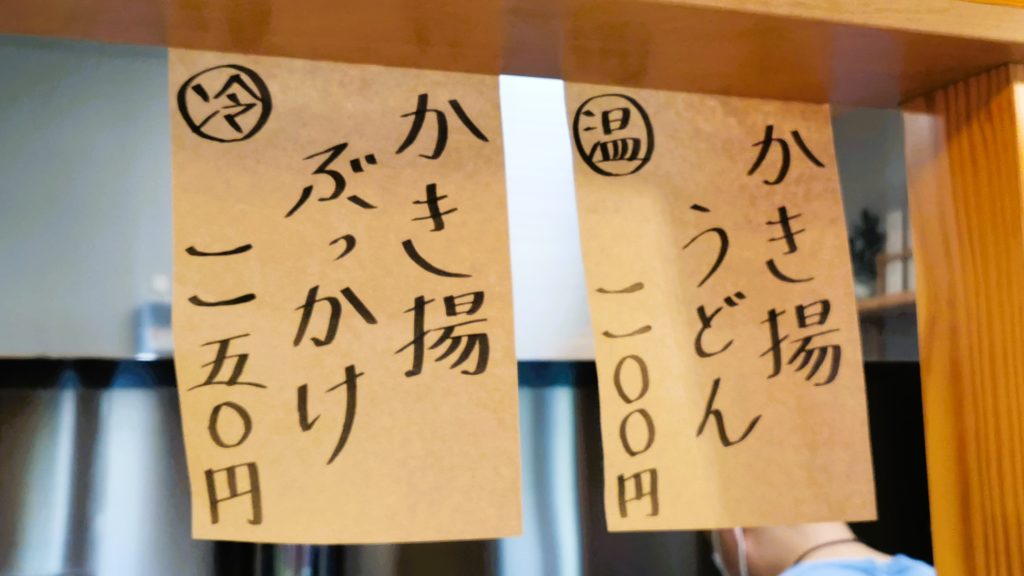 かき揚
ぶっかけ
冷 一一五〇円
かき揚
うどん
温 一一〇〇円